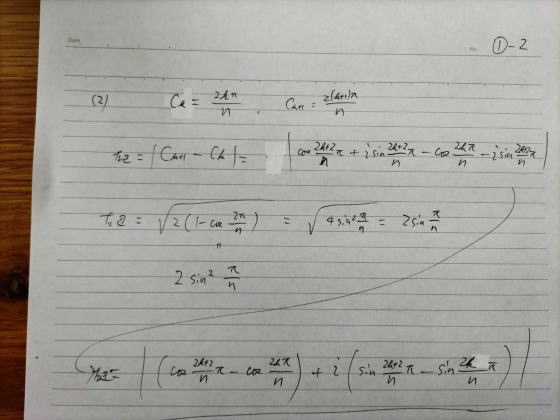 Date
No
①-2
(2) Ck = 2kπ/n , Ck+1 = 2(k+1)π/n
与式 = |Ck+1 - Ck| = |cos (2k+2)/n π + i sin (2k+2)/n π - cos 2kπ/n - i sin 2kπ/n|
与式 = √(2(1-cos 2π/n)) = √(4 sin² π/n) = 2 sin π/n
〃
2 sin² π/n
与式 = |(cos (2k+2)/n π - cos 2kπ/n) + i (sin (2k+2)/n π - sin 2k/n π)|